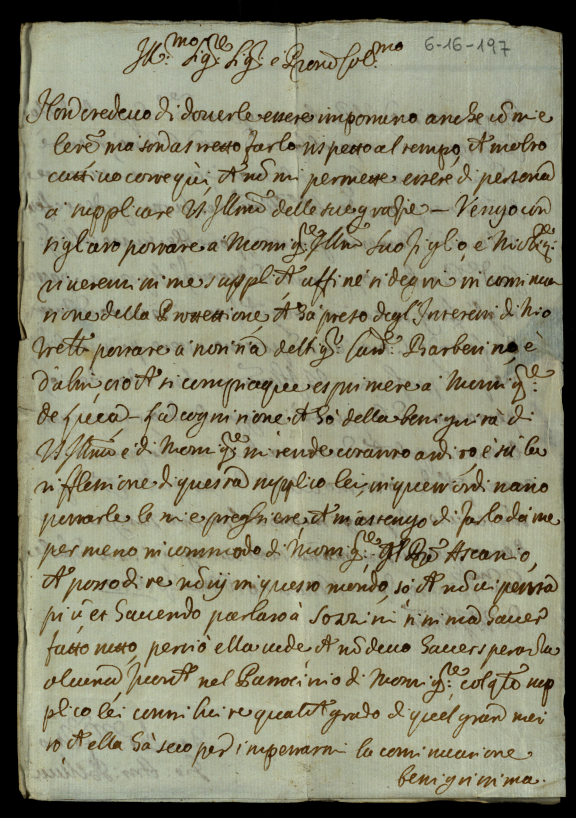 Ill.mo Sig.re Sig.r e Pron Col.mo
6-16-197
Non credevo di doverle essere importuno anche con mie
lere ma son astretto farlo rispetto al tempo, ch molto
cattivo corre qui, ch non mi permette essere di persona
a supplicare VS Illma delle sue grazie – Vengo con
sigliato portare a Monsig.re Illmo suo figlio e
riverentissime suppl affine si degni in continua
zione della Protettione ch ha preso degl'Interessi di mio
portare a notitia del sig.r Card. Barberino, è
da lui ciò ch si compiacque esprimere a Monsig.re
de Luca – La cognitione ch ho della benignità di
VS Illma e di Monsig.re mi rende tanto ardito è su la
riflessione di questa supplico lei, in quest'ordinario
portarle le mie preghiere ch m'astengo di farlo da me
per meno incommodo di Monsig.re Ascanio,
ch posso dire in questo mondo, so ch non ci pensa
più et havendo parlato à Sozzini stima haver
fatto tutto, perciò ella vede ch non devo haver speranza
alcuna fuorch nel Patrocinio di Monsig.re col qle sup
plico lei contribuire qualch grado di quel gran meri
to ch ella hà seco per impetrarmi la continuatione
benignissima.